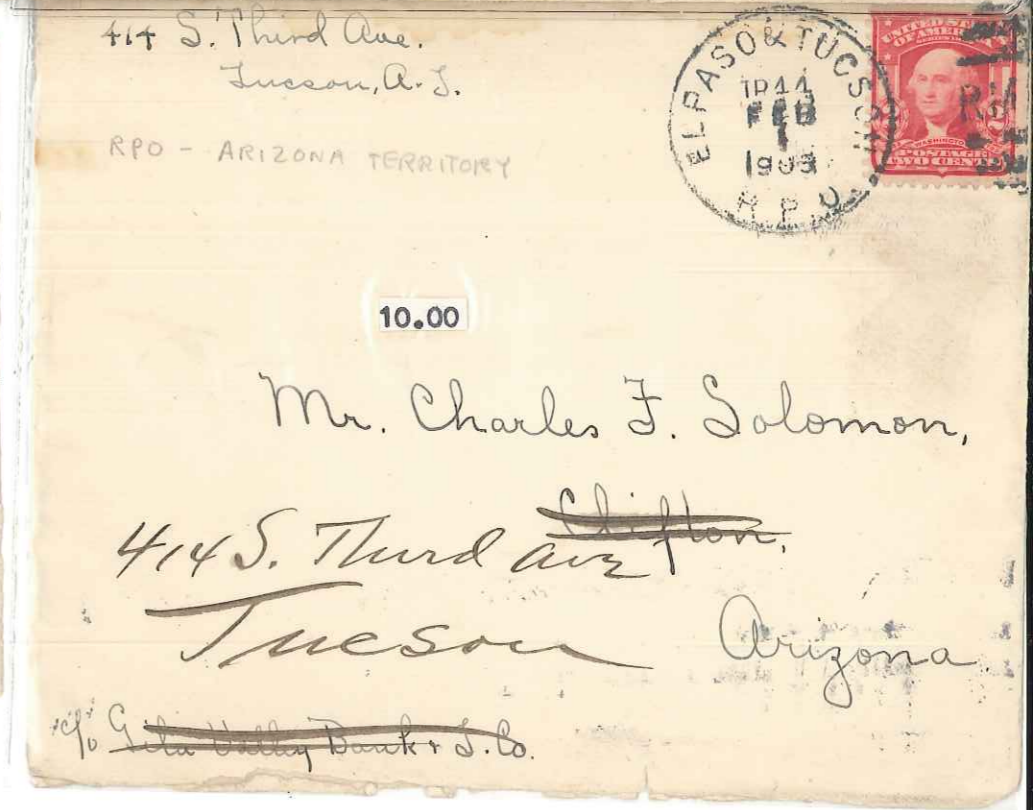 414 S. Third Ave.
Tucson, A. T.
RPO - ARIZONA TERRITORY
EL PASO & TUCSON
FEB
1
R. P. O.
UNITED STATES
OF AMERICA
WASHINGTON
POSTAGE
TWO CENTS
10.00
Mr. Charles F. Solomon,
Clifton,
414 S. Third Ave
Tucson
Arizona
c/o Gila Valley Bank & T. Co.